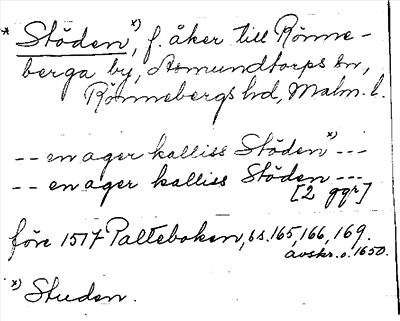 * Stöden *), f. åker till Rönne-
berga by, Asmundtorps sn,
Rönnebergs hd, Malm. l.
-- en ager kalliss Stöden *) ---
-- en ager kalliss Stöden ---
[2 ggr]
före 1517 Palteboken, ss. 165, 166, 169.
avskr. o. 1650.
*) Studen.